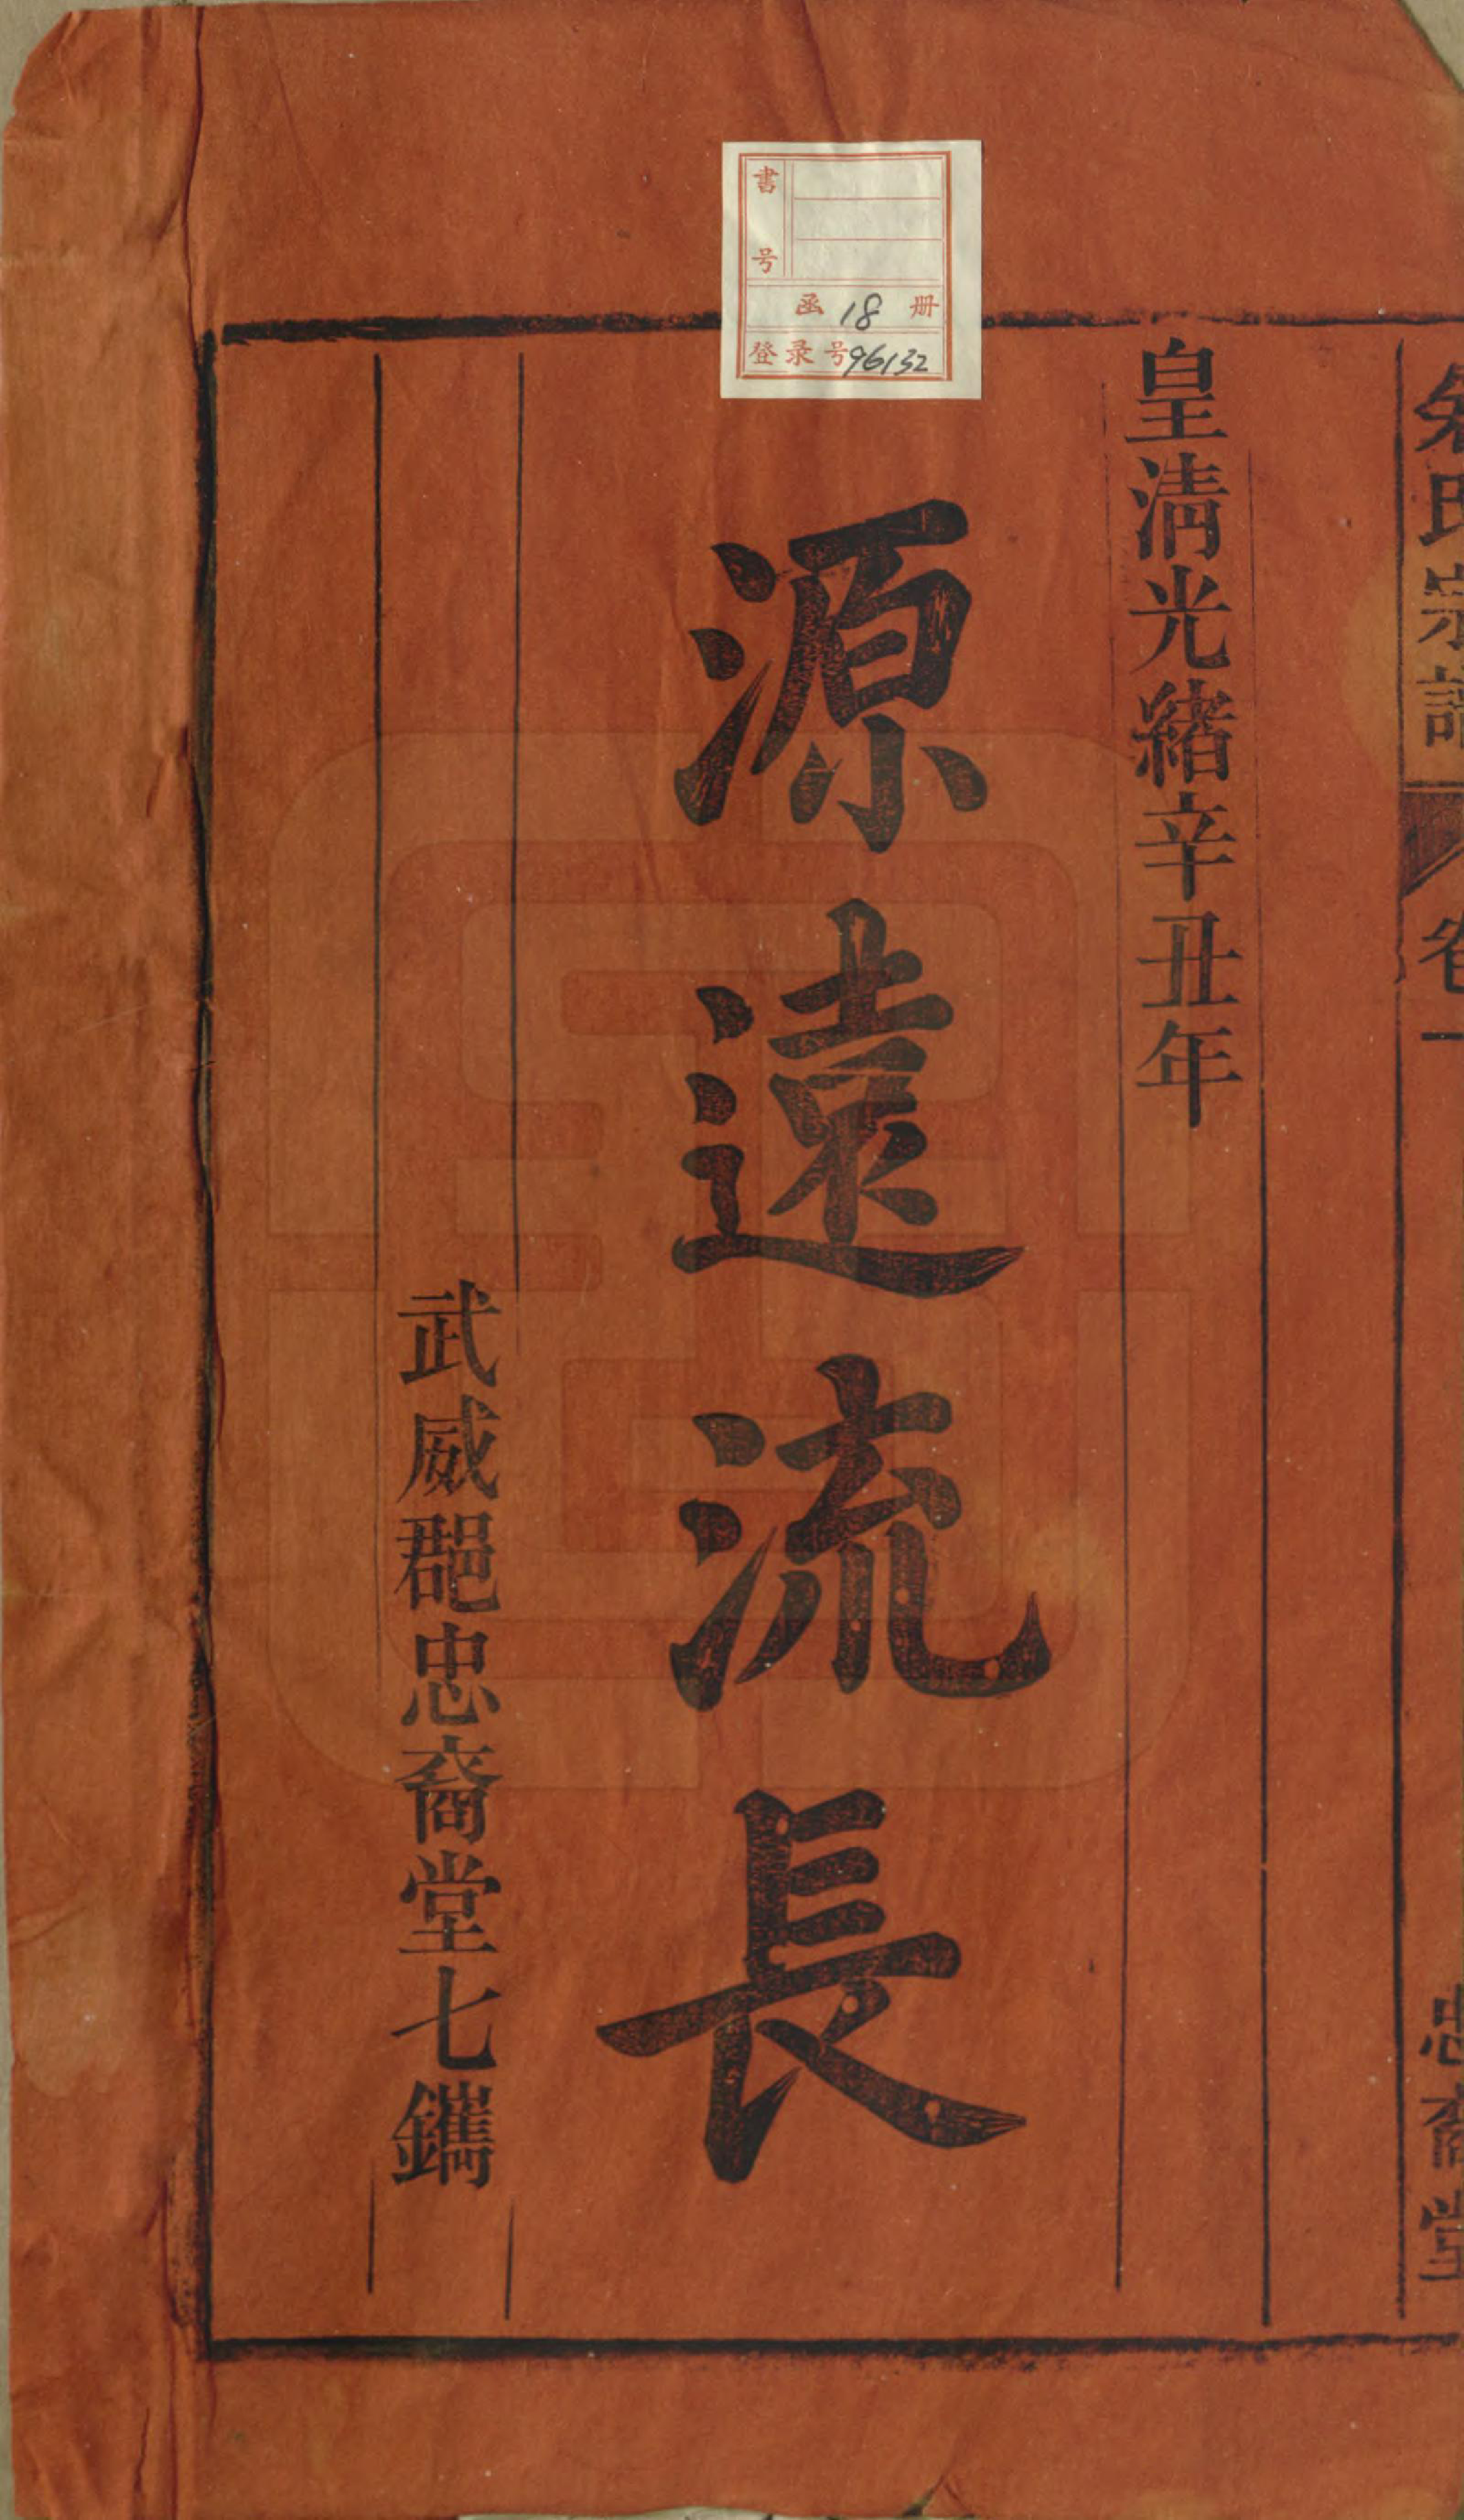 氏宗譜 卷一 忠裔堂
皇清光緒辛丑年
源遠流長
武威郡忠裔堂七鐫
書号
函 18 册
登录号96132